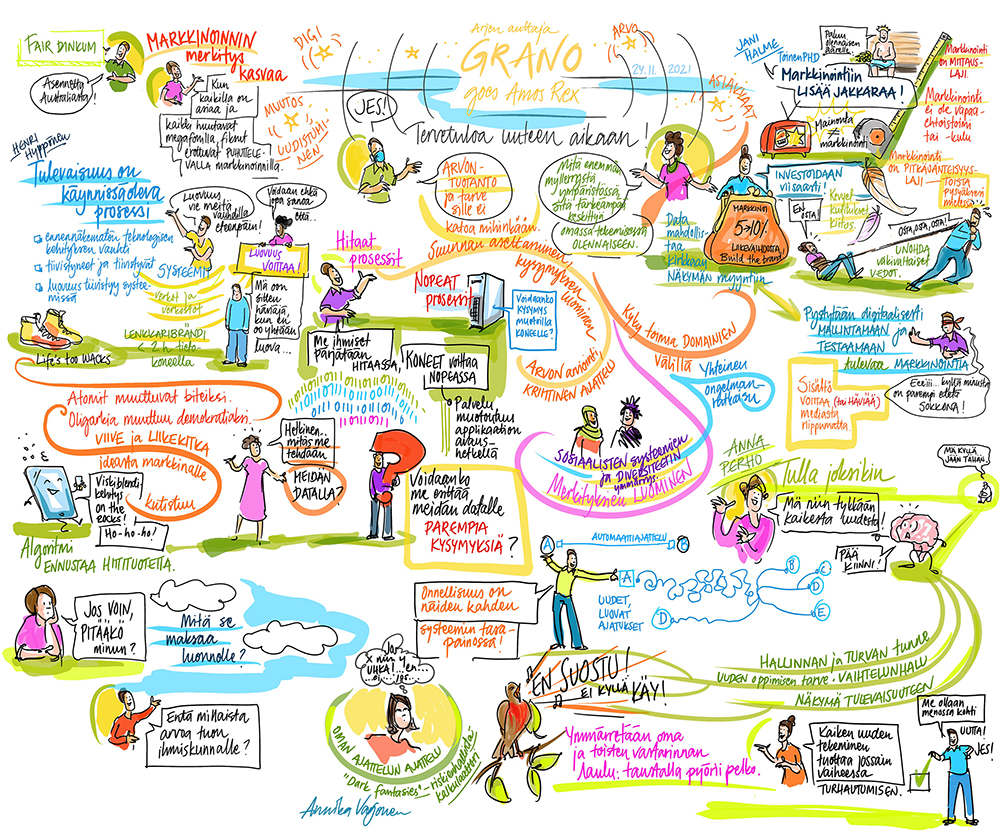 FAIR DINKUM
Asennetta
Australiasta!
MARKKINOINNIN
merkitys
kasvaa
Kun
kaikilla on
asiaa ja
kaikki huutavat
megafonilla, firmat
erottuvat PUHUTTELE-
VALLA markkinoinnilla.
DIGI
MUUTOS
UUDISTUMI-
NEN
Arjen auttaja
GRANO
goes Amos Rex
24.11. 2021
ARVO
ASIAKKAAT
JES!
Tervetuloa uuteen aikaan!
ARVON-
TUOTANTO
ja tarve
sille ei
katoa mihinkään.
Mitä enemmän
myllerrystä
ympäristössä,
sitä tärkeämpää
keskittyä
omassa tekemisessä
OLENNAISEEN.
JANI
HALME
Toinen PHD
Paluu
olennaisen
äärelle
Markkinointiin
LISÄÄ JAKKARAA!
Mainonta
≠
markkinointi
Markkinointi
on MITTAUS-
LAJI.
Markkinointi
ei ole vapaa-
ehtoistoimi
tai -kulu
Markkinointi
on PITKÄJÄNTEISYYS-
LAJI
TOISTA
pysyäksesi
mielessä
INVESTOIDAAN
viisaasti!
MARKKINOINTI
5->10%
LIIKEVAIHDOSTA
Build the brand
Kevyet
kutitukset
kiitos.
EN
OSTA!
OSTA, OSTA, OSTA!
UNOHDA
väkinäiset
VEDOT.
Data
mahdollis-
taa
kirkkaan
NÄKYMÄN myyntiin
HENRI
HYPPÖNEN
Tulevaisuus on
käynnissäoleva
prosessi
ennennäkemätön teknologisen
kehityksen vauhti
tiivistyneet ja tiivistyvät
luovuus tiivistyy systee-
missä
SYSTEEMIT
verkot ja
verkostot
LENKKARIBRÄNDI
2 h tieto-
koneella
Life's too WACKS
Luovuus
vie meitä
vauhdilla
eteenpäin!
Voidaan ehkä
jopa sanoa
että...
LUOVUUS
VOITTAA!
Mä oon
sitten
häviäjä
kun en
oo yhtään
luova...
Hitaat
prosessit
NOPEAT
prosessit
Suunnan asettaminen
kysymyksen luominen
ARVON arviointi,
KRIITTINEN AJATTELU
Voidaanko
KYSYMYS
muotoilla
KONEELLE?
Me ihmiset
pärjätään
HITAASSA,
KONEET voittaa
NOPEASSA
Palvelu
muotoutuu
applikaation
avaus-
hetkellä
Kyky toimia DOMAINIEN
Välillä
Yhteinen
ongelman-
ratkaisu
SOSIAALISTEN systeemien
ja DIVERSITEETIN
ymmärrys.
Merkityksien LUOMINEN
Pystytään digitaalisesti
MALLINTAMAAN ja
TESTAAMAAN
tulevaa MARKKINOINTIA
Sisältö
VOITTAA (tai HÄVIÄÄ)
mediasta
riippumatta
Eeeiii... kyllä minusta
on parempi edetä
SOKKONA!
Atomit muuttuvat biteiksi.
Oligarkia muuttuu demokratiaksi.
VIIVE ja LIIKEKITKA
ideasta markkinalle
kutistuu
Viski blendi
kehitys
on the
ROCKS!
Ho-ho-ho!
Algoritmi
ENNUSTAA HITTITUOTETTA.
Hetkinen...
mitäs me
tehdään
MEIDÄN
DATALLA?
Voidaanko
me esittää
meidän datalle
PAREMPIA
KYSYMYKSIÄ?
ANNA
PERHO
Tulla joksikin
Mä niin tykkään
kaikesta uudesta!
PÄÄ
KIINNI!
MÄ KYLLÄ
JÄÄN TÄHÄN.
A AUTOMAATTIAJATTELU B
A
UUDET,
LUOVAT
AJATUKSET
B
C
D
D
E
Onnellisuus on
näiden kahden
systeemin tasa-
painossa!
JOS VOIN,
PITÄÄKÖ
MINUN?
Mitä se
maksaa
luonnolle?
Entä millaista
arvoa tuon
ihmiskunnalle?
X niin Y
UHKA!...en...
OMAN AJATTELUN AJATTELU
"Dark fantasies"
EN SUOSTU!
EI KYLLÄ
KÄY!
Ymmärretään oma
ja toisten vastarinnan
laulu: taustalla pyörii pelko.
HALLINNAN ja TURVAN tunne
UUDEN oppimisen tarve. VAIHTELUNHALU
NÄKYMÄ TULEVAISUUTEEN
Kaiken uuden
tekeminen
tuottaa jossain
vaiheessa
TURHAUTUMISEN.
Me ollaan
menossa kohti
UUTTA!
JES!
Annika Varjonen